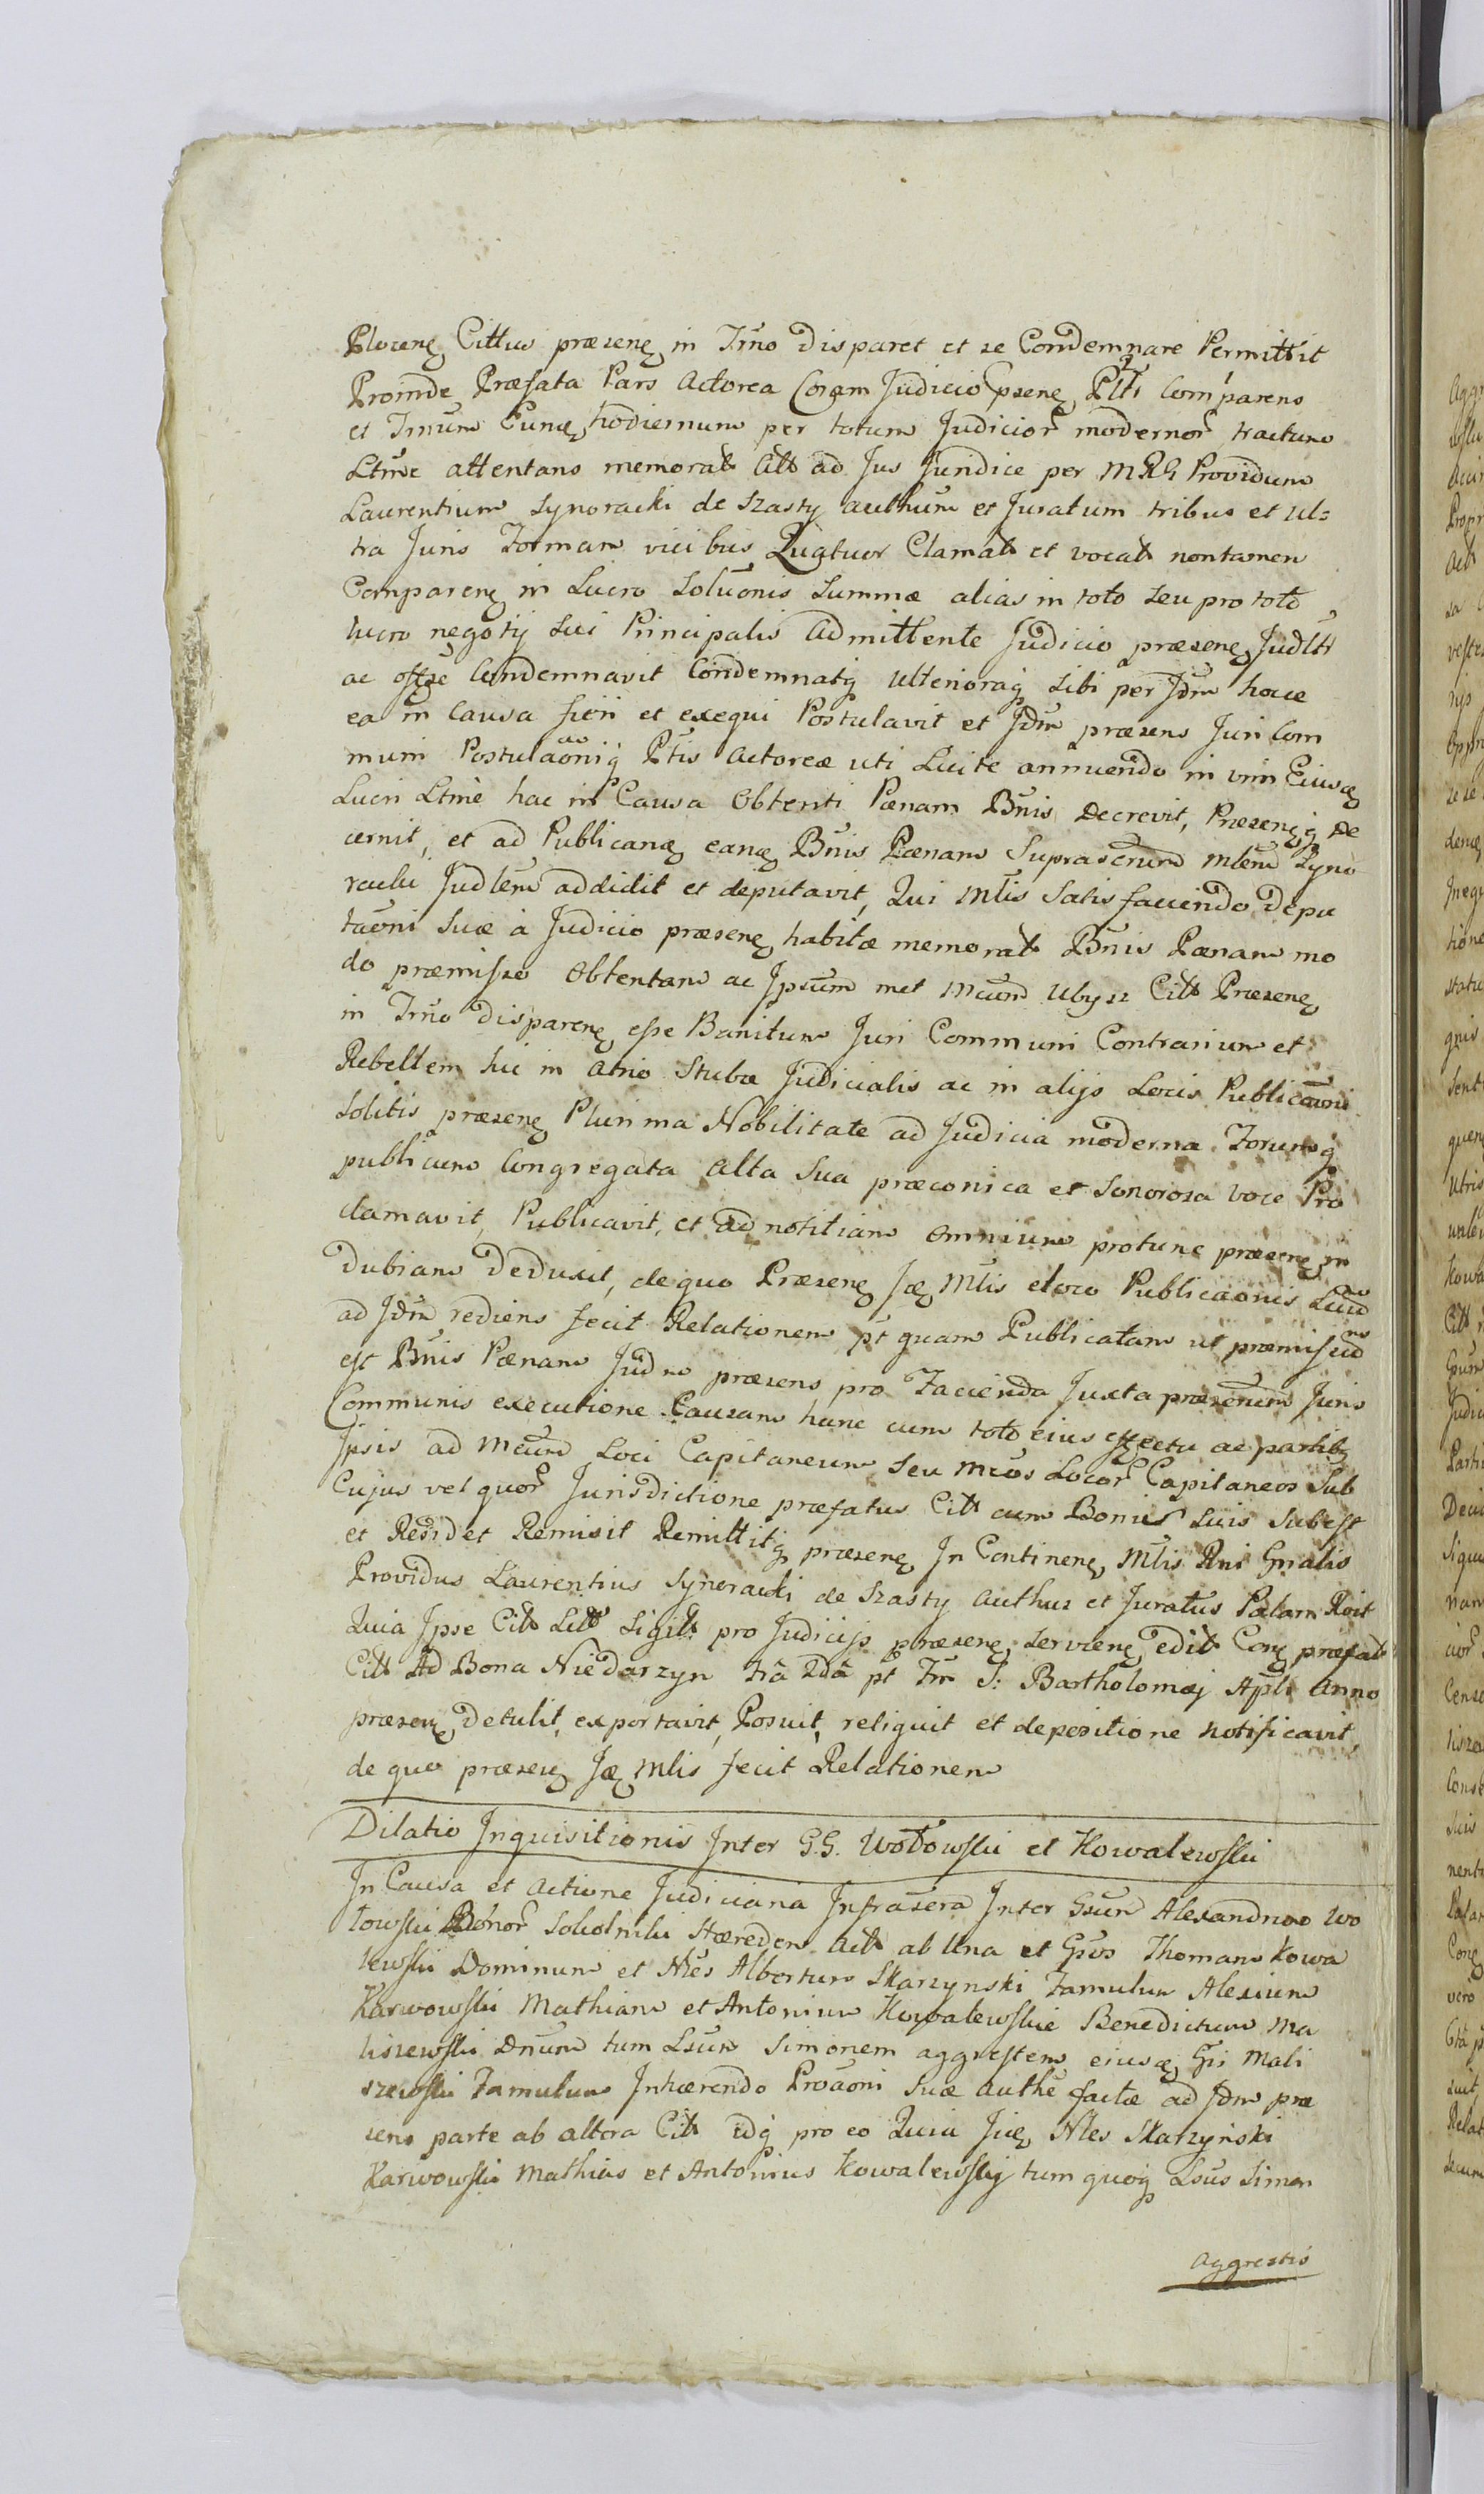 Plocen Cittus præsen in Trno disparet et se Condemnare Permittit
Proinde Præfata Pars Actorea Coram Judicio præsen Pltr Comparens
et Trnum Eunde hodiernum per totum Judicior modernor tractum
Ltme attentans memorat Citt ad Jus Juridice per MRG Providum
Laurentium Synoracki de Szasty authum et Juratum tribus et ul=
tra Juris Formam vicibus Quatuor Clamat et vocat non tamen
Comparen in Lucro Soluonis Summæ alias in toto seu pro toto
lucro negotij sui Principalis Admittente Judicio præsen Judltr
ac offse Condemnavit Condemnatq ulterioraq sibi per Jdm hocce
ea in Causa fieri et exequi Postulavit et Jdm præsens Juri Com
muni Postulaoniq Ptis Actoreæ uti Licite annuendo in vim Eiusde
Lucri Ltme hac in Causa Obtenti Pænam Bnis Decrevit, Præsenq De
cernit, et ad Publicand eand Bnis Pænam Suprascrum Mlem Syno
racki Judlem addidit et deputavit, Qui Mlis Satisfaciendo depu
taoni Suæ a Judicio præsen habitæ memorat Bnis Pænam mo
do præmisso Obtentam ac Ipsum met Mcum Ubysz Citt Præsen
in Trno disparen esse Banitum Juri Communi Contrarium et
Rebellem hic in Atrio Stubæ Judicialis ac in alijs Locis Publicaoni
Solitis præsen Plurima Nobilitate ad Judicia moderna Forumq
publicum Congregata Alta Sua præconica et Sonorosa voce Pro
clamavit, Publicavit, et ad notitiam omnium protunc præsen in
dubiam deduxit, de quo Præsen Jde Mlis e loco Publicaonis
ad Jdm rediens fecit Relationem pt quam Publicatam ut præmissum
est Bnis Pænam Judm præsens pro Facienda Juxta præscrum Juris
Communis executione Causam hanc cum toto eius effectu ac partib
Ipsis ad Mcum Loci Capitaneum seu Mcos Locor Capitaneos Sub
Cujus vel quor Jurisdictione præfatus Citt cum Bonis Suis Subest
et Residet Remisit Remittitq præsen In Continen Mlis Rni Gnalis
Providus Laurentius Synoracki de Szasty Authus et Juratus Palam Roit
Quia Ipse Citt Litt Sigilt pro Judicijs præsen servien edit Con præfat
Citt Ad Bona Niedarzyn fria 2da pt Fm S: Bartholomæj Apli Anno
præsen detulit, exportavit, Posuit, reliquit et depositione notificavit,
de quo præsen Jde Mlis fecit Relationem
Dilatio Inquisitionis Inter G.G. Wołowski et Kowalewski
In Causa et Actione Judiciaria Infrascra Inter Gsum Alexandrum Wo
łowski Bonor Sokolniki Hæredem Act ab Una et Gsos Thomam Kowa
lewski Dominum et Nles Albertum Skarzynski Famulum Alexium
Karwowski Mathiam et Antonium Kowalewskie Benedictum Ma
liszewski Dnum tum Lsum Simonem aggrestem eiusde Gsi Mali
szewski Famulum Inhærendo Proaoni Suæ Authe factæ ad Jdm præ
sens parte ab altera Citt idq pro eo Quia Jide Nles Skarzynski
Karwowski Mathias et Antonius Kowalewskij tum quoq Lsus Simon
Aggrestis